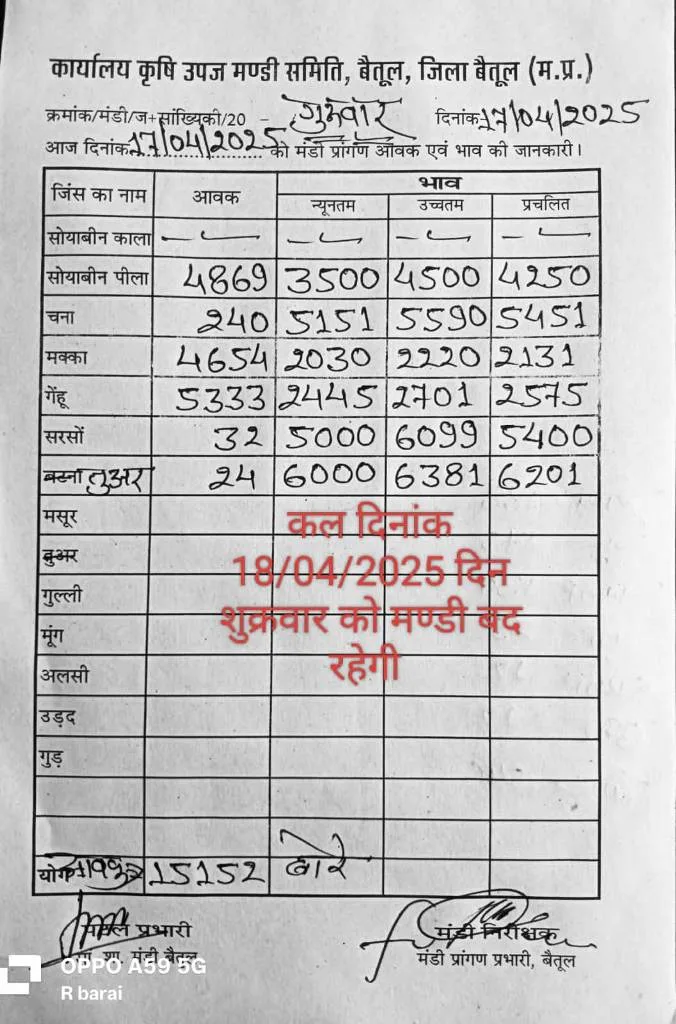 कार्यालय कृषि उपज मण्डी समिति, बैतूल, जिला बैतूल (म.प्र.)
क्रमांक/मंडी/ज+सांख्यिकी/20 - गुरूवार दिनांक 17/04/2025
आज दिनांक 17/04/2025 को मंडी प्रांगण आवक एवं भाव की जानकारी।
जिंस का नाम आवक भाव
न्यूनतम उच्चतम प्रचलित
सोयाबीन काला - - - -
सोयाबीन पीला 4869 3500 4500 4250
चना 240 5151 5590 5451
मक्का 4654 2030 2220 2131
गेंहू 5333 2445 2701 2575
सरसों 32 5000 6099 5400
बटना तुअर 24 6000 6381 6201
मसूर
तुअर
गुल्ली
मूंग
अलसी
उड़द
गुड़
कल दिनांक
18/04/2025 दिन
शुक्रवार को मण्डी बंद
रहेगी
योग 15152 बोरे
प्रभारी
शा. मंडी बैतूल
मंडी निरीक्षक
मंडी प्रांगण प्रभारी, बैतूल
OPPO A59 5G
R barai